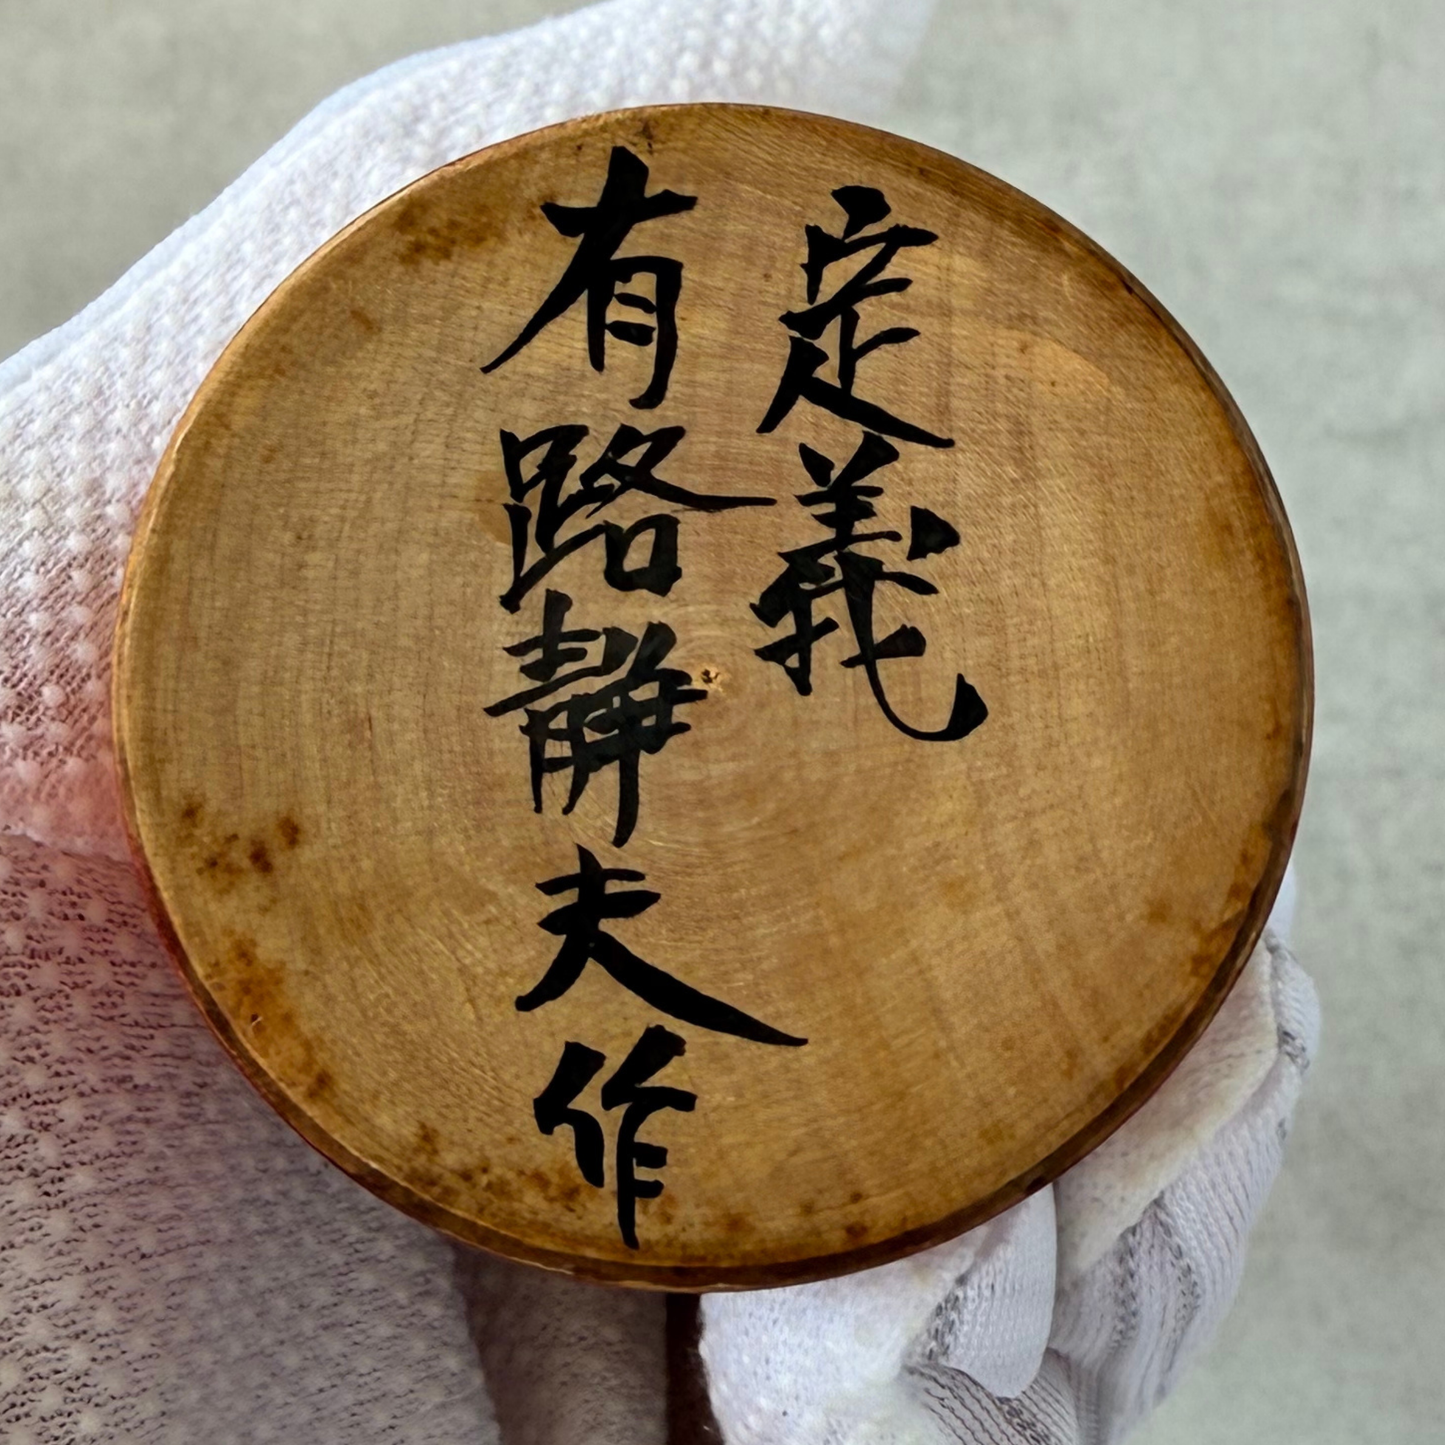 定義
有路静夫作